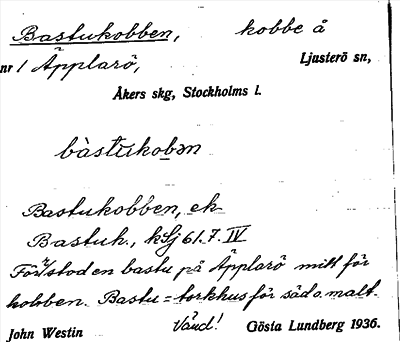 Bastukobben, kobbe å
nr 1 Äpplarö, Ljusterö sn,
Åkers skg, Stockholms l.
bàstukobən
Bastukobben, ek
Bastuh., kSj 61.7. IV
Förr stod en bastu på Äpplarö mitt för
kobben. Bastu = torkhus för säd o. malt.
Vänd!
John Westin Gösta Lundberg 1936.